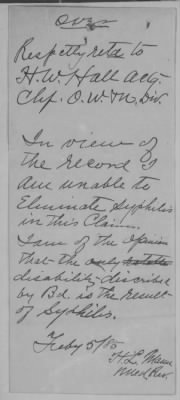 over
Respetly retd to
H. W. Hall actg.
Chf. O. W. & N. Div.
In view of
the record I
am unable to
Eliminate Syphilis
in this Claim.
I am of the opinion
that the only
disability described
by Bd. is the result
of Syphilis.
Feby 5/85
H. L.
Med Rev.